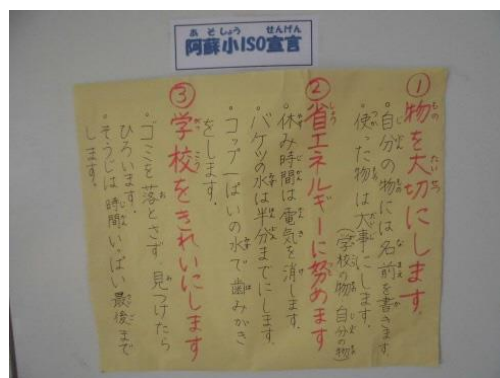 阿蘇小ISO宣言
①物を大切にします。
・自分の物には名前を書きます。
・使った物は大事にします。
(学校の物、自分の物)
②省エネルギーに努めます
・休み時間は電気を消します。
・バケツの水は半分までにします。
・コップ一ぱいの水で歯みがき
をします。
③学校をきれいにします
・ゴミを落とさず、見つけたら
ひろいます。
・そうじは時間いっぱい最後まで
します。